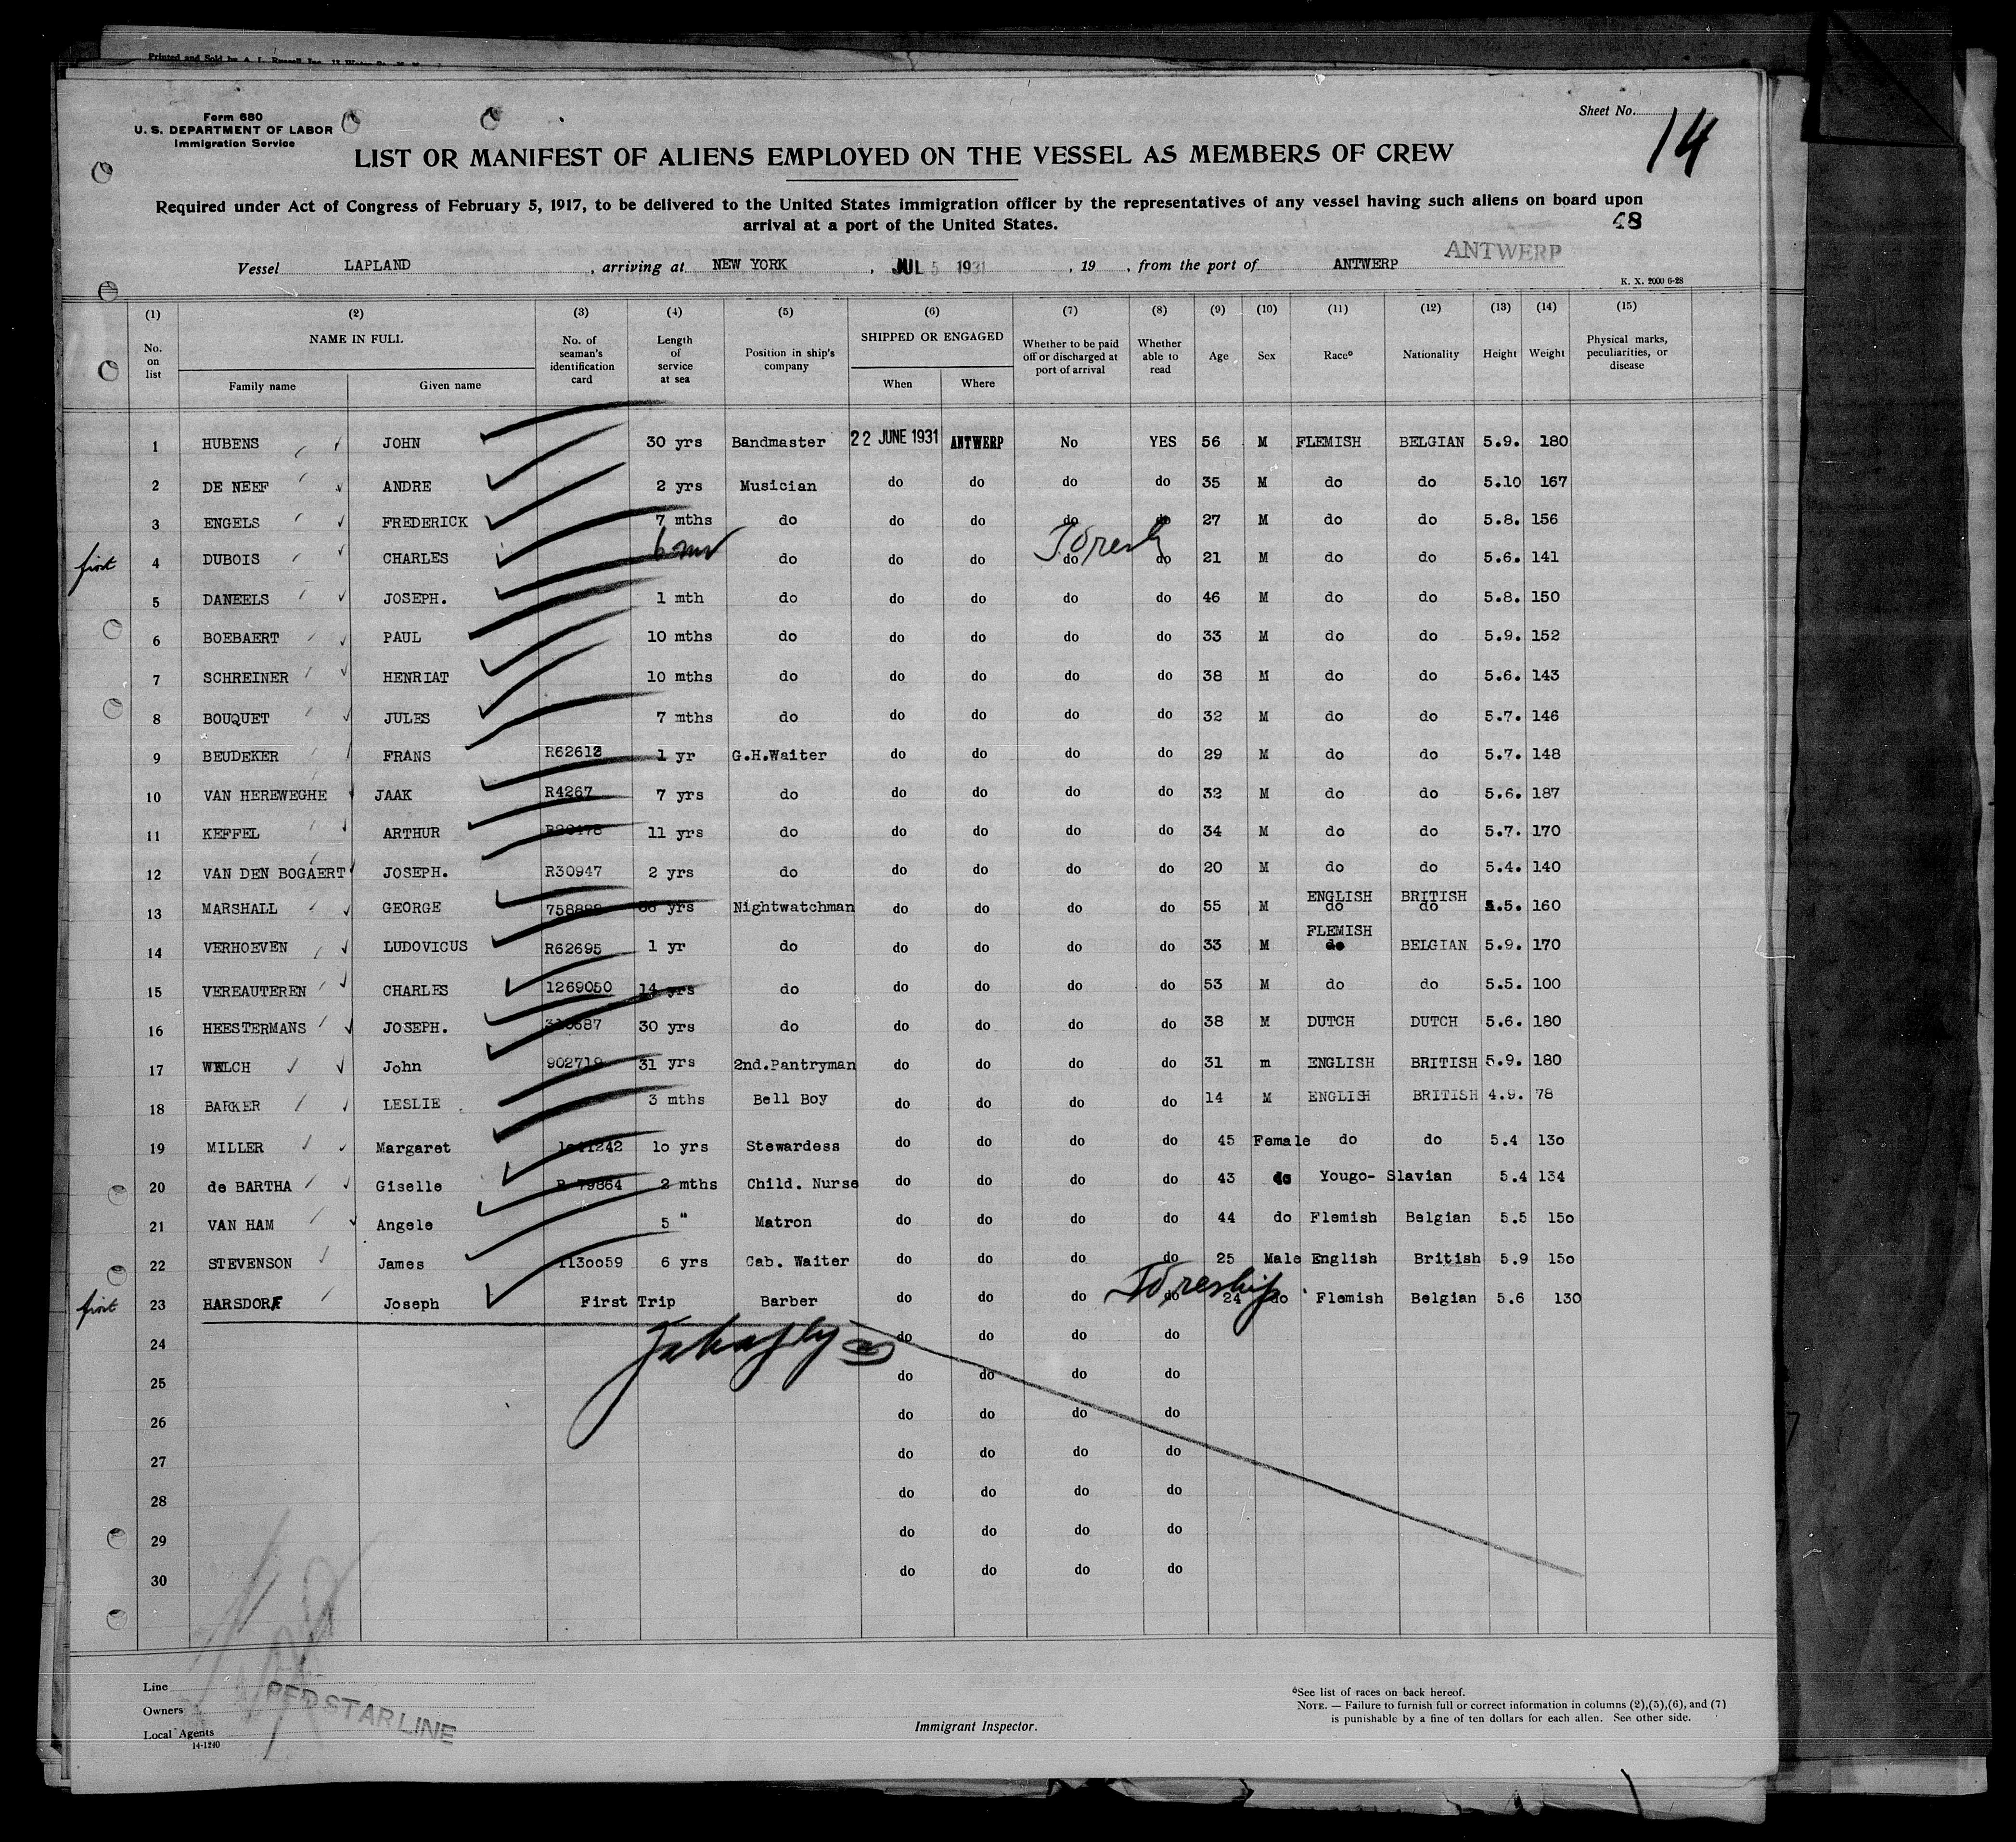 Printed and Sold by A. L. Russell Inc.
Form 680
U. S. DEPARTMENT OF LABOR
Immigration Service
Sheet No. 14
LIST OR MANIFEST OF ALIENS EMPLOYED ON THE VESSEL AS MEMBERS OF CREW
Required under Act of Congress of February 5, 1917, to be delivered to the United States immigration officer by the representatives of any vessel having such aliens on board upon
arrival at a port of the United States.
48
ANTWERP
Vessel LAPLAND, arriving at NEW YORK, JUL 5 1931, 19 , from the port of ANTWERP
K. X. 2000 6-28
(1) (2) (3) (4) (5) (6) (7) (8) (9) (10) (11) (12) (13) (14) (15)
No. on list NAME IN FULL Family name Given name No. of seaman's identification card Length of service at sea Position in ship's company SHIPPED OR ENGAGED When Where Whether to be paid off or discharged at port of arrival Whether able to read Age Sex Race Nationality Height Weight Physical marks, peculiarities, or disease
1 HUBENS JOHN 30 yrs Bandmaster 22 JUNE 1931 ANTWERP No YES 56 M FLEMISH BELGIAN 5.9. 180
2 DE NEEF ANDRE 2 yrs Musician do do do do 35 M do do 5.10 167
3 ENGELS FREDERICK 7 mths do do do do do 27 M do do 5.8. 156
first 4 DUBOIS CHARLES do do do do do 21 M do do 5.6. 141
5 DANEELS JOSEPH. 1 mth do do do do do 46 M do do 5.8. 150
6 BOEBAERT PAUL 10 mths do do do do do 33 M do do 5.9. 152
7 SCHREINER HENRIAT 10 mths do do do do do 38 M do do 5.6. 143
8 BOUQUET JULES 7 mths do do do do do 32 M do do 5.7. 146
9 BEUDEKER FRANS R62612 1 yr G.H.Waiter do do do do 29 M do do 5.7. 148
10 VAN HEREWEGHE JAAK R4267 7 yrs do do do do do 32 M do do 5.6. 187
11 KEFFEL ARTHUR 11 yrs do do do do do 34 M do do 5.7. 170
12 VAN DEN BOGAERT JOSEPH. R30947 2 yrs do do do do do 20 M do do 5.4. 140
13 MARSHALL GEORGE yrs Nightwatchman do do do do 55 M ENGLISH do BRITISH do 5.5. 160
14 VERHOEVEN LUDOVICUS R62695 1 yr do do do do do 33 M FLEMISH do BELGIAN 5.9. 170
15 VEREAUTEREN CHARLES 1269050 14 yrs do do do do do 53 M do do 5.5. 100
16 HEESTERMANS JOSEPH. 30 yrs do do do do do 38 M DUTCH DUTCH 5.6. 180
17 WELCH John 902719 31 yrs 2nd.Pantryman do do do do 31 m ENGLISH BRITISH 5.9. 180
18 BARKER LESLIE 3 mths Bell Boy do do do do 14 M ENGLISH BRITISH 4.9. 78
19 MILLER Margaret lo yrs Stewardess do do do do 45 Female do do 5.4 13o
20 de BARTHA Giselle R 79864 2 mths Child. Nurse do do do do 43 do Yougo- Slavian 5.4 134
21 VAN HAM Angele 5 " Matron do do do do 44 do Flemish Belgian 5.5 15o
22 STEVENSON James 113oo59 6 yrs Cab. Waiter do do do do 25 Male English British 5.9 15o
first 23 HARSDORF Joseph First Trip Barber do do do do 24 do Flemish Belgian 5.6 130
24 do do do
25 do do do do
26 do do do do
27 do do do do
28 do do do do
29 do do do do
30 do do do do
Line
Owners
Local Agents
RED STAR LINE
14-1240
Immigrant Inspector.
See list of races on back hereof.
NOTE. — Failure to furnish full or correct information in columns (2),(5),(6), and (7)
is punishable by a fine of ten dollars for each alien. See other side.